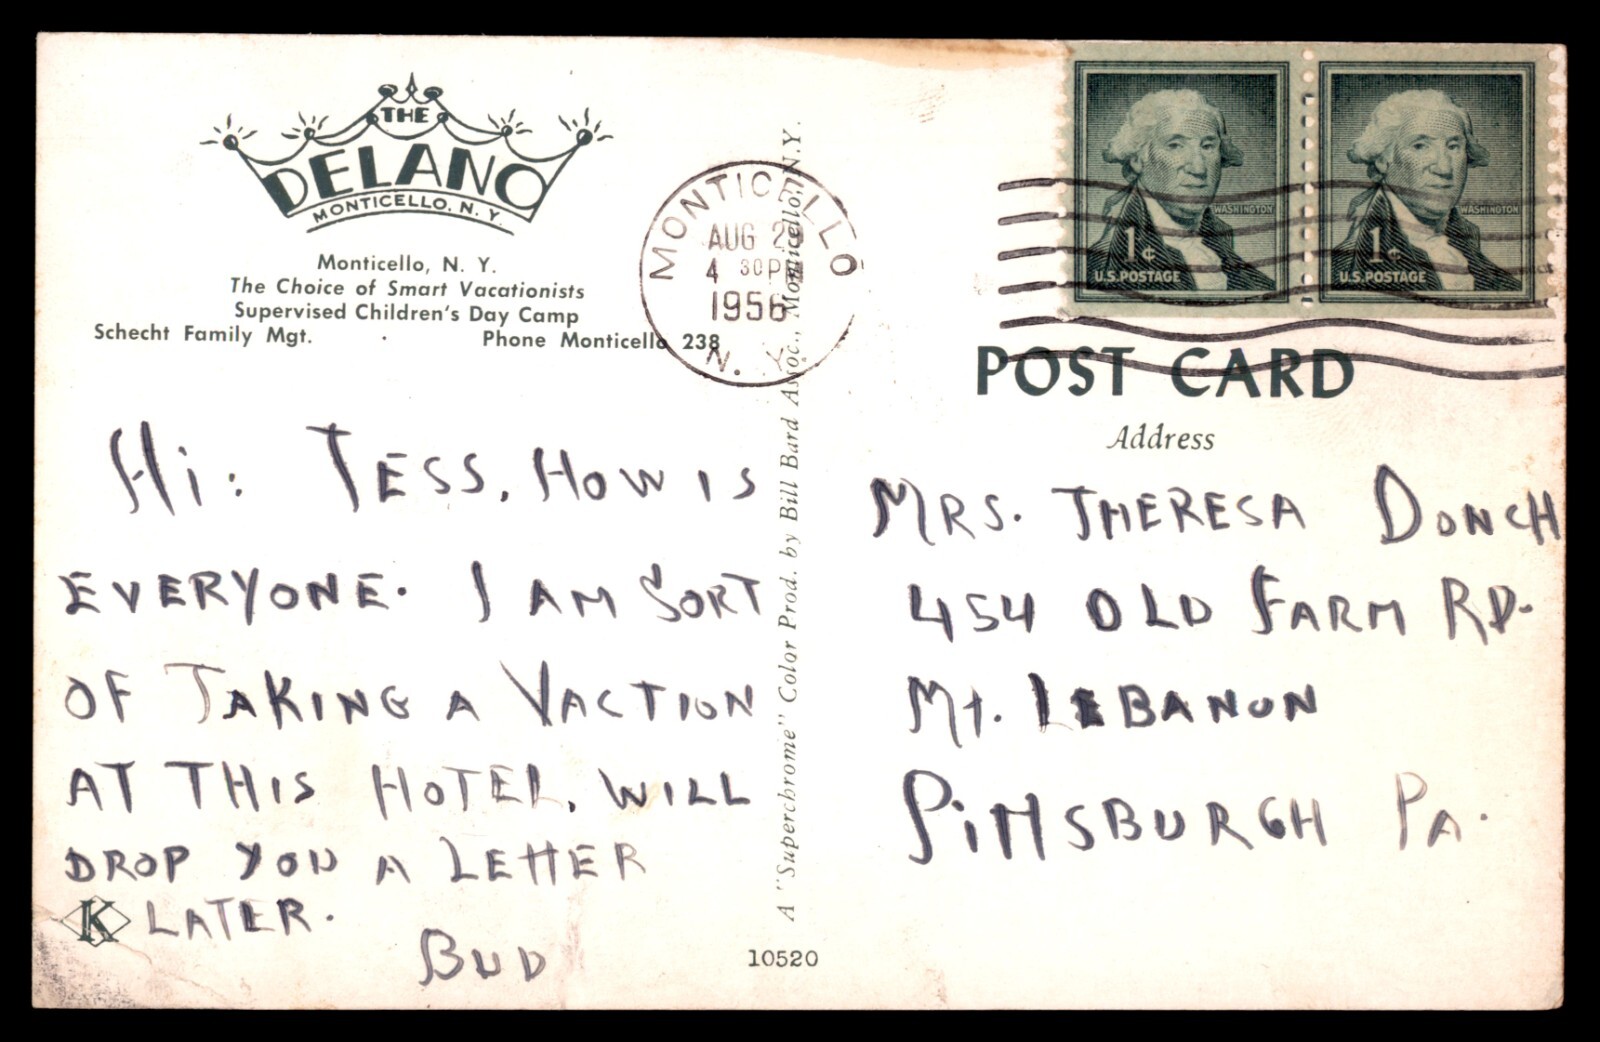 THE
DELANO
MONTICELLO, N. Y.
Monticello, N. Y.
The Choice of Smart Vacationists
Supervised Children's Day Camp
Schecht Family Mgt. · Phone Monticello 238
Hi: TESS, HOW IS
EVERYONE. I AM SORT
OF TAKING A VACTION
AT THIS HOTEL. WILL
DROP YOU A LETTER
K LATER.
BUD
A "Superchrome" Color Prod. by Bill Bard Assoc., Monticello, N.Y.
10520
MONTICELLO
AUG
4 30PM
1956
N. Y.
WASHINGTON
1¢
U.S. POSTAGE
WASHINGTON
1¢
U.S. POSTAGE
POST CARD
Address
MRS. THERESA DONCH
454 OLD FARM RD.
Mt. LEBANON
PITTSBURGH PA.